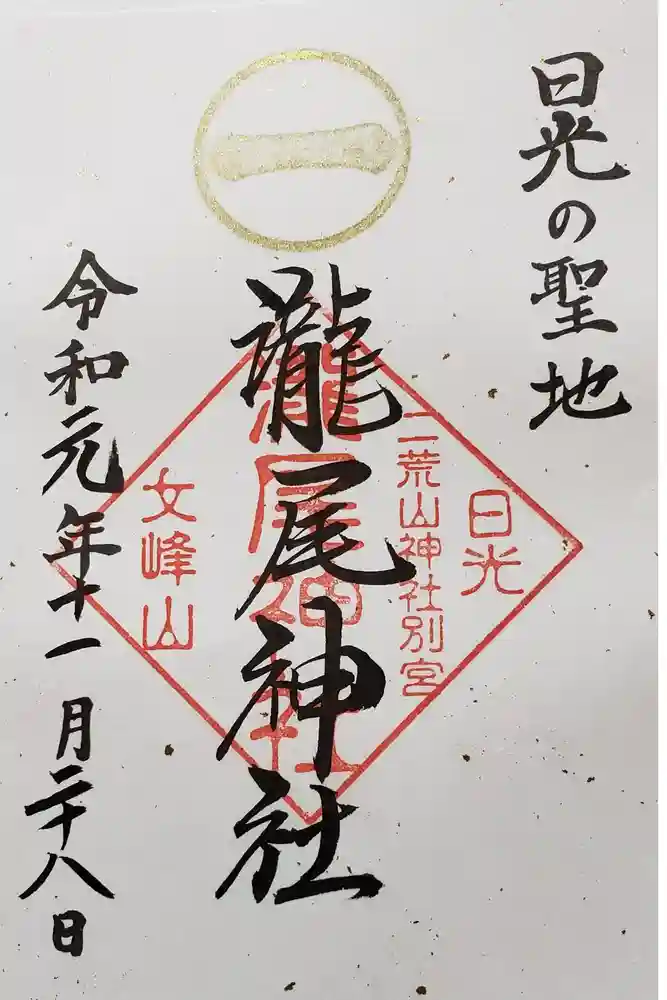 日光の聖地
一
瀧尾神社
日光
二荒山神社別宮
瀧尾神社
女峰山
令和元年十一月二十八日